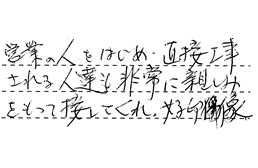 営業の人をはじめ、直接工事
される人達も非常に親しみ
をもって接してくれ、好印象